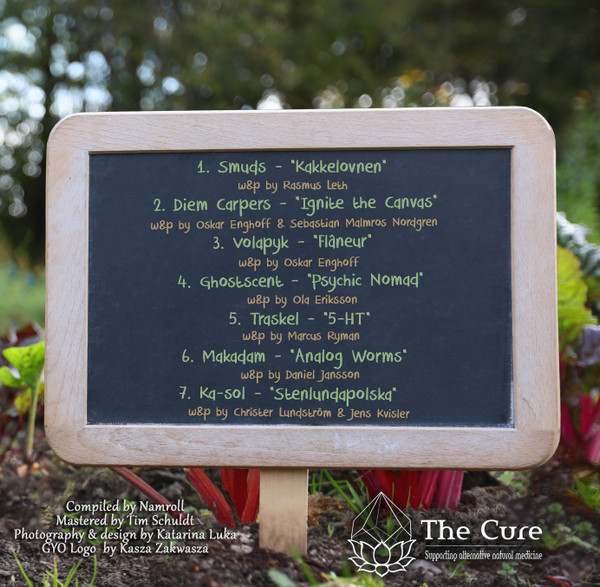 1. Smuds - "Kakkelovnen"
w&p by Rasmus Leth
2. Diem Carpers - "Ignite the Canvas"
w&p by Oskar Enghoff & Sebastian Malmros Nordgren
3. Volapyk - "Flâneur"
w&p by Oskar Enghoff
4. Ghostscent - "Psychic Nomad"
w&p by Ola Eriksson
5. Traskel - "5-HT"
w&p by Marcus Ryman
6. Makadam - "Analog Worms"
w&p by Daniel Jansson
7. Ka-sol - "Stenlundapolska"
w&p by Christer Lundström & Jens Kvisler
Compiled by Namroll
Mastered by Tim Schuldt
Photography & design by Katarina Luka
GYO Logo by Kasza Zakwasza
The Cure
Supporting alternative natural medicine